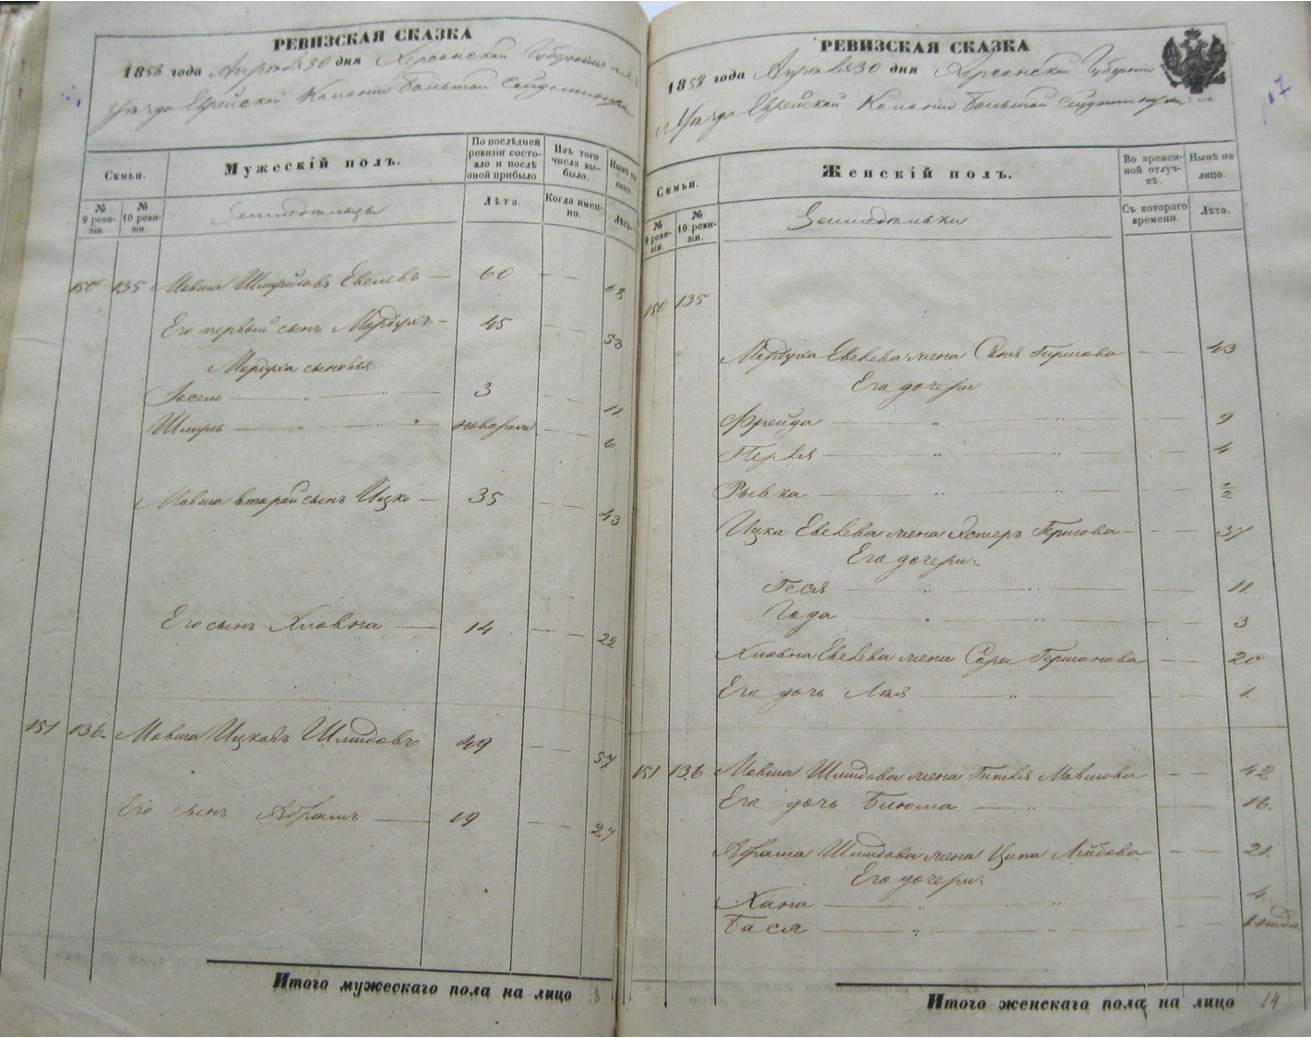 РЕВИЗСКАЯ СКАЗКА
1858 года Апреля 30 дня Херсонской Губернии
уезда Еврейской Колонии Большой Сейдеминухи
Семьи.
Мужескій полъ.
По послѣдней ревизіи состояло и послѣ оной прибыло
Изъ того числа выбыло.
Нынѣ на лицо.
№ 9 ревизіи.
№ 10 ревизіи.
Земледельцы
Лѣта.
Когда именно.
Лѣта.
150 135 Мовша Шмуйловъ Евелевъ — 60 — — 68
Его первый сынъ Мордухъ — 45 — — 53
Мордуха сыновья:
Іосель — „ — „ — 3 — — 11
Шмуль — „ — „ — новорож — — 6
Мовша второй сынъ Ицко — 35 — — 43
Его сынъ Хловна — 14 — — 22
151 136. Мовша Ицковъ Шмидовъ 49 — — 57
Его сынъ Абрамъ — 19 — — 27
Итого мужескаго пола на лицо 8
РЕВИЗСКАЯ СКАЗКА
1858 года Апреля 30 дня Херсонской Губернии
Уезда Еврейской Колонии Большой Сейдеминухи
Семьи.
Женскій полъ.
Во временной отлучкѣ.
Нынѣ на лицо.
№ 9 ревизіи.
№ 10 ревизіи.
Земледельки
Съ котораго времени.
Лѣта.
150 135
Мордуха Евелева жена Соня Гершова — — 43
Его дочери
Фрейда — „ — 9
Перля — „ — 4
Рывка — „ — ½
Ицка Евелева жена Эстеръ Гершова — — — 37
Его дочери:
Геся — „ — 11.
Года — „ — 3
Хловна Евелева жена Сора Гершонова — — 20
Его дочь Лея — „ — 1.
151 136 Мовша Шмидова жена Мовшова — — 42
Его дочь Блюма — „ — 16.
Абрама Шмидова жена Ципа Лейбова — — 21.
Его дочери:
Хана — „ — „ — 4.
Бася — „ — „ —
Итого женскаго пола на лицо 14